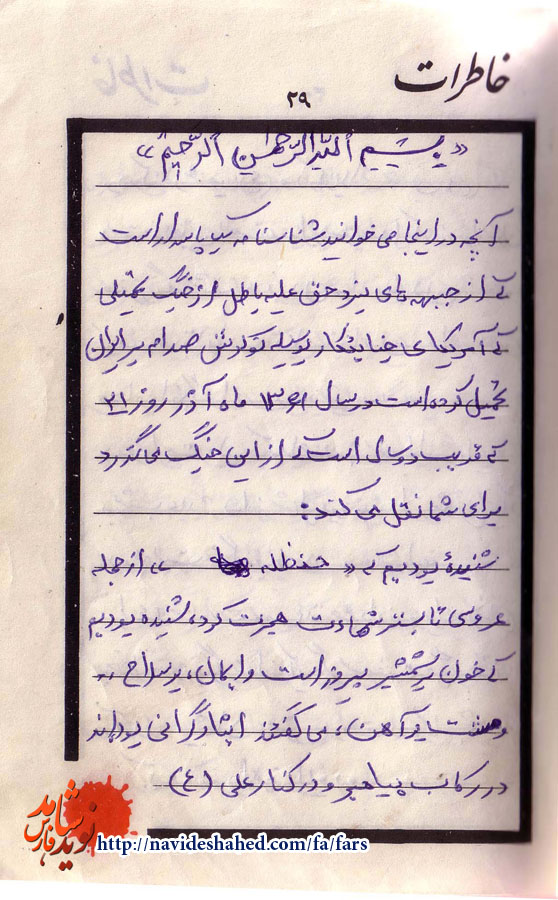 خاطرات
۲۹
«بسم الله الرحمن الرحیم»
آنچه در اینجا می خوانید شناسنامه یک پاسدار است
که از جبهه های نبرد حق علیه باطل از جنگ تحمیلی
که آمریکای جنایتکار بوسیله نوکرش صدام بر ایران
تحمیل کرده است در سال ۱۳۶۱ ماه آذر روز ۲۱
که قریب دو سال است که از این جنگ می گذرد
برای شما نقل می کند:
شنیده بودیم که «حنظله» از حجله
عروسی تا بستر شهادت هجرت کرد، شنیده بودیم
که خون بر شمشیر پیروز است و ایمان، بر سلاح ..
و مشت بر آهن، می گفتند ایثارگرانی بودند
در رکاب پیامبر و در کنار علی (ع)
نوید شاهد
فارس
http://navideshahed.com/fa/fars